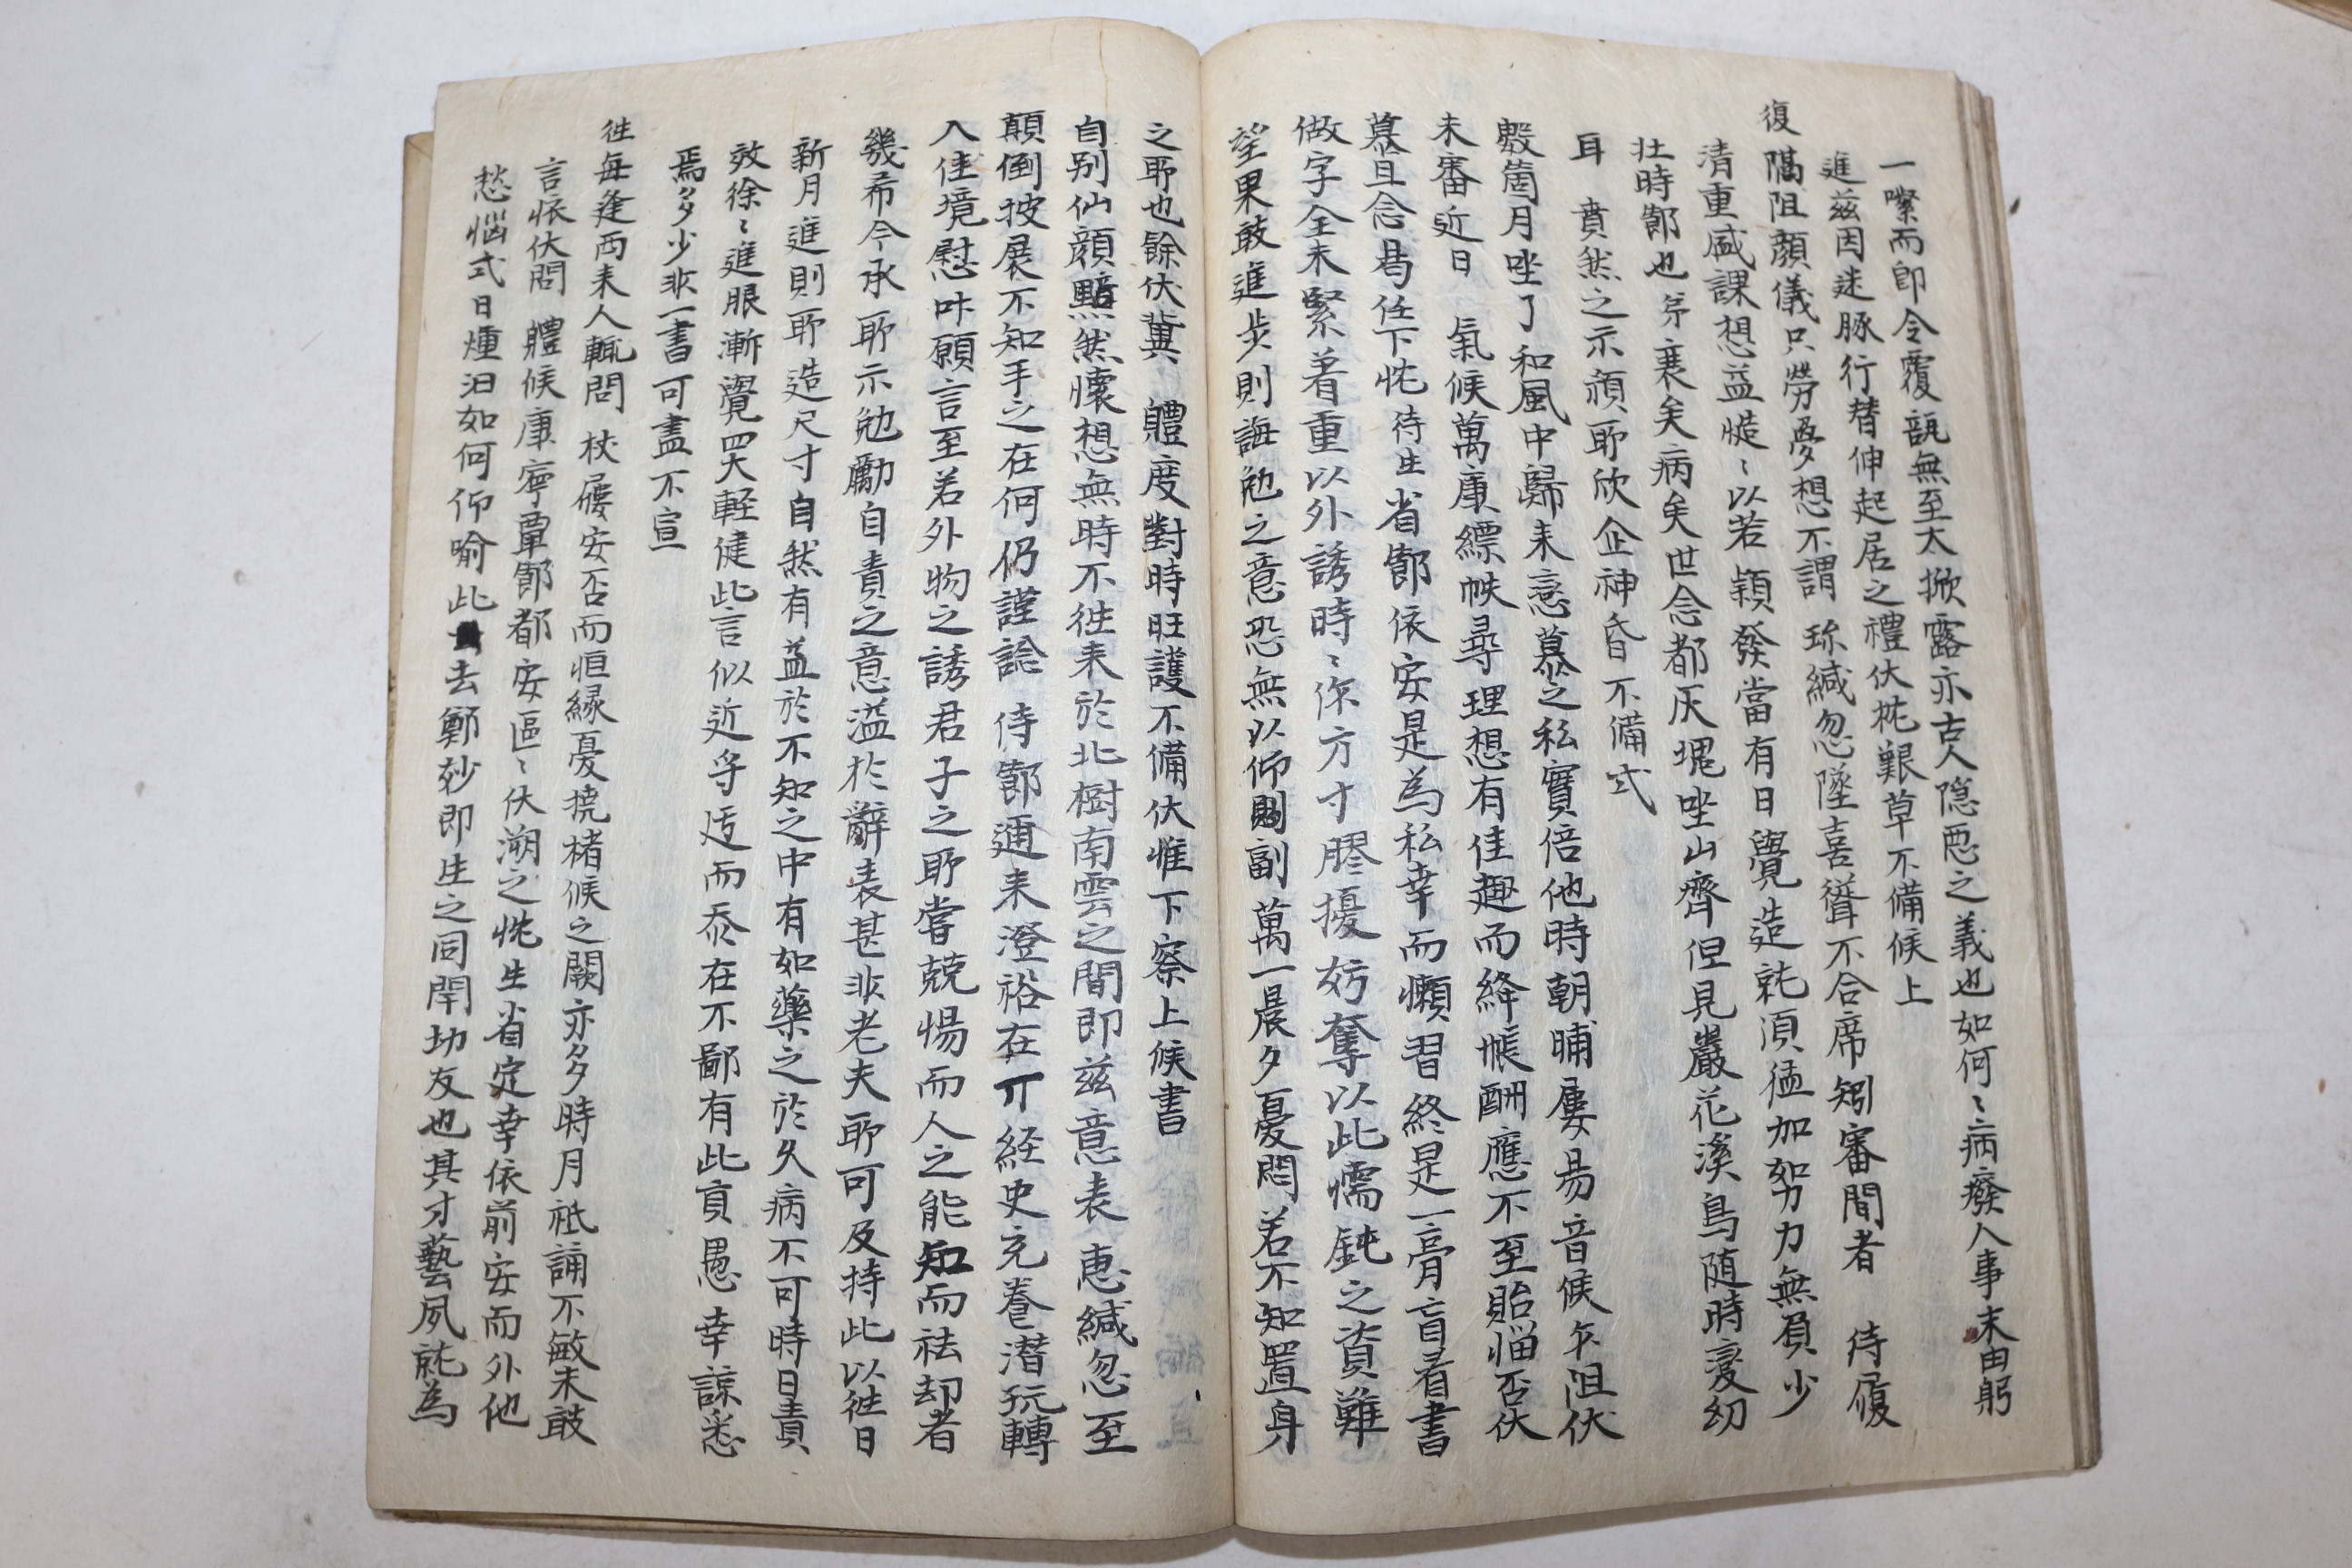 一嚛而卽令覆瓿無至大掀露亦古人隐恶之義也如何〻病癈人事末由躬
進茲因迷豚行替伸起居之禮伏枕艱草不備候上
復 隔阻顔儀只勞夢想不謂 珎緘忽墜喜聳不合席矧審間者 侍履
清重威課想益慥〻以若穎發當有日覺造訦湏猛加努力無負少
壯時莭也弟衰矣病矣世念都灰塊坐山齊但見巖花溪鳥随時变幻
耳 賁然之示頫耶欣企神昏不備式
數箇月唑了和風中歸来戀慕之私實倍他時朝晡屢易音候乍阻伏
未審近日 氣候萬康縹帙尋理想有佳趣而絳帳酬應不至貽惱否伏
慕且念曷任下忱待生省莭依安是為私幸而懶習終是一膏盲看書
做字全未緊着重以外誘時〻作方寸膠擾妨奪以此懦鈍之資難
望果敢進步則誨勉之意恐無以仰副萬一晨夕憂悶若不知置身
之耶也餘伏冀 軆度對時旺護不備伏惟下察上候書
自别仙顔黯然懷想無時不徃来於北樹南雲之間即茲意表 恵緘忽至
顛倒披展不知手之在何仍謹諗 侍莭逥来澄裕在丌経史充養潜玩轉
入佳境慰咔願言至若外物之誘君子之耶嘗兢惕而人之能知而祛却者
幾希今承耶示勉勵自責之意溢於辭表甚非老夫耶可及持此以徃日
新月進則耶造尺寸自然有益於不知之中有如藥之於久病不可時日責
效徐〻進服漸覺四大軽健此言似近乎迃而忝在不鄙有此貢愚幸諒悉
焉多少非一書可盡不宣
徃每逢西来人輒問 杖屨安否而恒緣憂撓楮候之闕亦多時月祇誦不敏未敢
言悵伏問 軆候康寧覃莭都安區〻伏溯之忱生省定幸依前安而外他
愁惱式日煄汩如何仰喻此去鄭玅即生之同閈切友也其才藝夙訦為